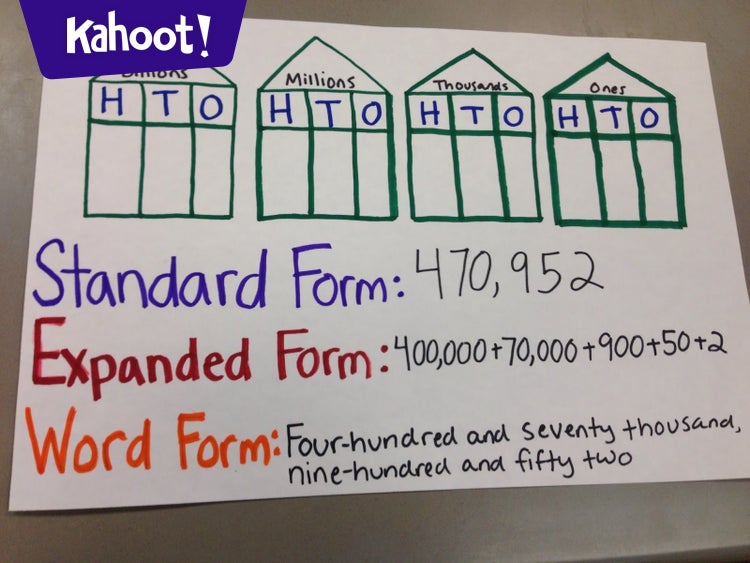 Kahoot!
Billions Millions Thousands Ones
H T O H T O H T O H T O
Standard Form: 470,952
Expanded Form: 400,000+70,000+900+50+2
Word Form: Four-hundred and seventy thousand,
nine-hundred and fifty two